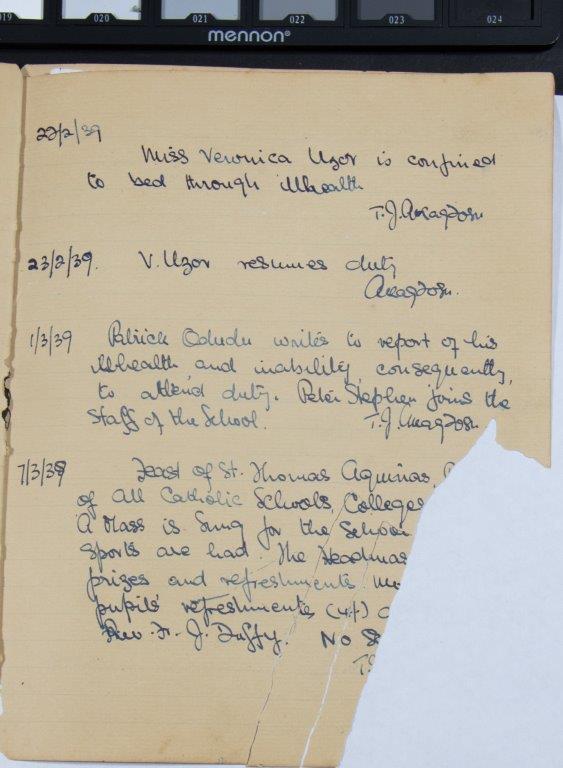 019 020 021 022 023 024
mennon®
22/2/39
Miss Veronica Uzor is confined
to bed through illhealth
T.J. Akagbosu
23/2/39. V. Uzor resumes duty
Akagbosu.
1/3/39 Patrick Odudu writes to report of his
illhealth and inability, consequently,
to attend duty. Peter Stephen joins the
Staff of the School. T.J. Akagbosu
7/3/39 Feast of St. Thomas Aquinas,
of all Catholic Schools, Colleges
A Mass is Sung for the School
Sports are had. The Headmas
prizes and refreshments
pupils' refreshments (4/-)
Rev. Fr. J. Duffy. No
T.